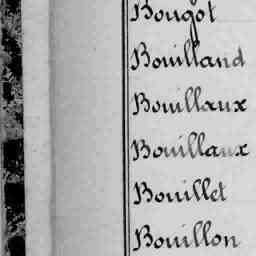 Bougot
Bouilland
Bouillaux
Bouillaux
Bouillet
Bouillon